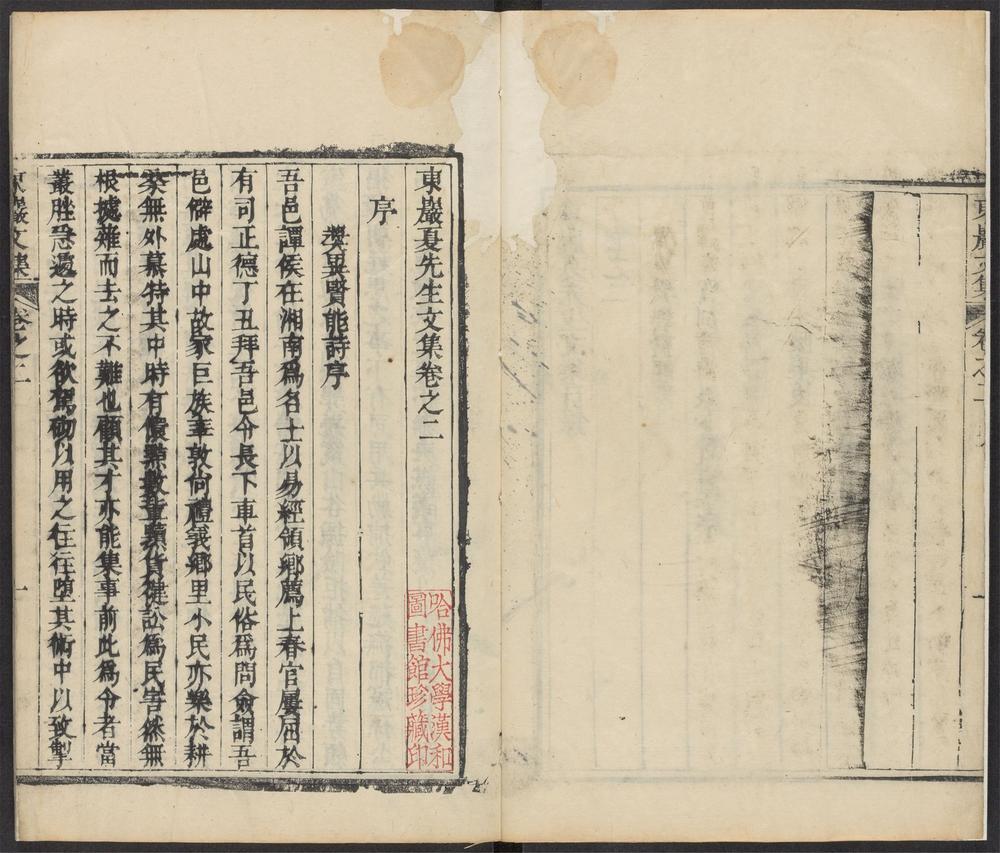 東巖文集 卷之二
東巖夏先生文集卷之二
序
奬異賢能詩序
吾邑譚侯在湘南爲名士以易經領鄉薦上春官屢屈於
有司正德丁丑拜吾邑令長下車首以民俗爲問僉謂吾
邑僻處山中故家巨族率敦尙禮義鄉里小民亦樂於耕
桑無外慕特其中時有儇黠數輩鬻貨健訟爲民害然無
根據薙而去之不難也顧其才亦能集事前此爲令者當
叢脞急遽之時或欲駕馭以用之往往墮其術中以致掣
東巖文集 卷之二
一
哈佛大學漢和
圖書館珍藏印